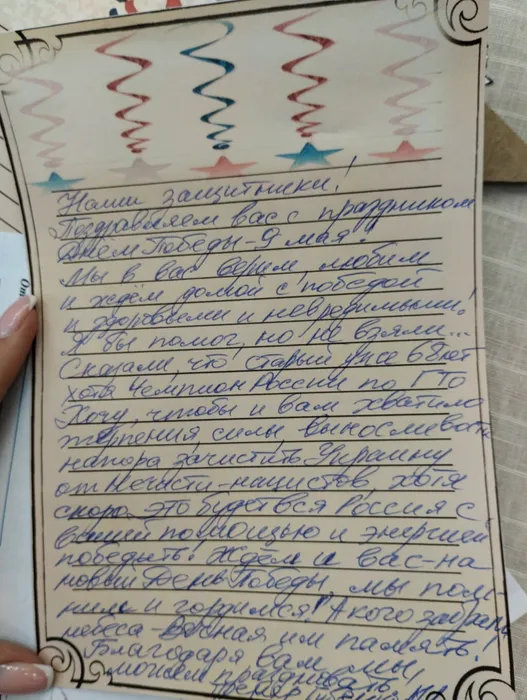 Наши защитники!
Поздравляем вас с праздником
Днём Победы - 9 мая!
Мы в вас верим, любим
и ждём домой с победой
и здоровыми и невредимыми!
Я бы помог, но не взяли...
Сказали, что старый уже 68 лет
хотя Чемпион России по ГТО
Хочу, чтобы и вам хватило
терпения, силы, выносливости
напора, зачистить Украину
от нечисти-нацистов, хотя
скоро это будет вся Россия с
вашей помощью и энергией
победить! Ждём и вас-на
новый День Победы, мы пом-
ним и гордимся! А кого забрали
небеса - Вечная им память!
Благодаря вам мы,
можем праздновать